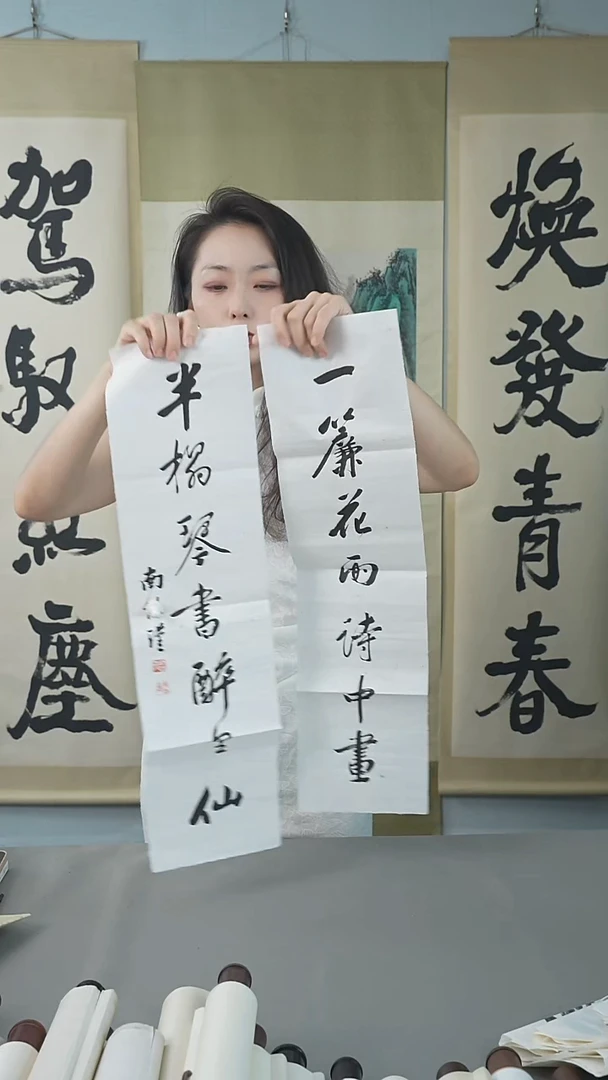 煥發青春
一簾花雨詩中畫
半榻琴書醉仙
南懷瑾
駕馭紅塵